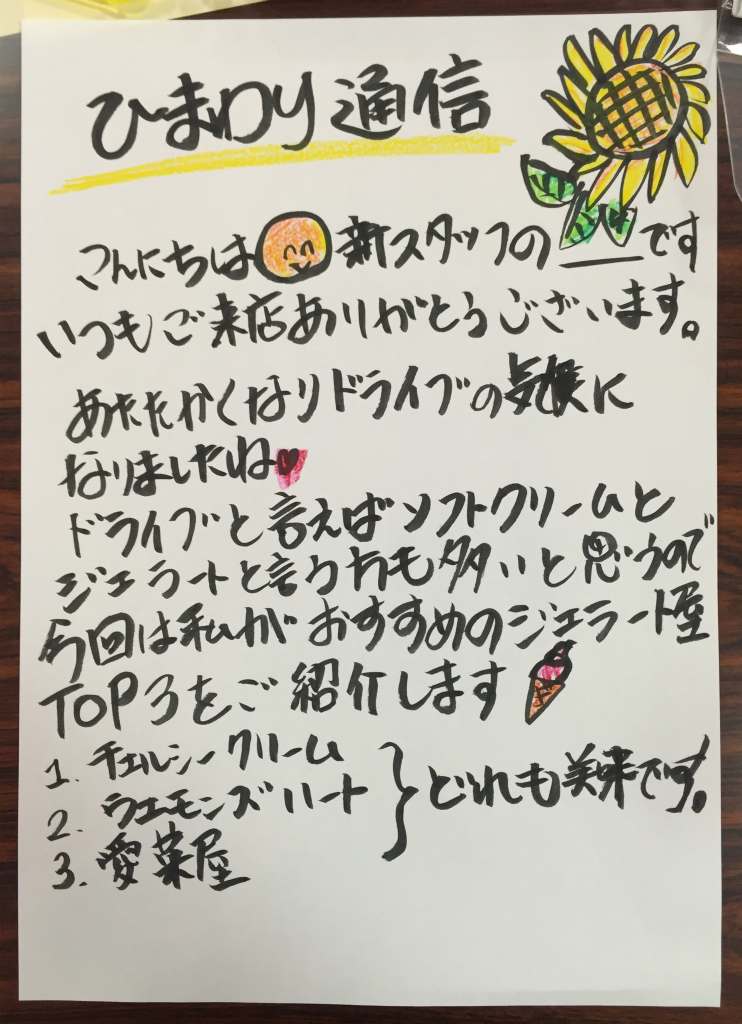 ひまわり通信
こんにちは 新スタッフの です
いつもご来店ありがとうございます。
あたたかくなりドライブの気候に
なりましたね
ドライブと言えばソフトクリームと
ジェラートと言う方も多いと思うので
今回は私がおすすめのジェラート屋
TOP3をご紹介します
1. チェルシークリーム
2. ウエモンズハート
3. 愛菜屋
どれも美味です。